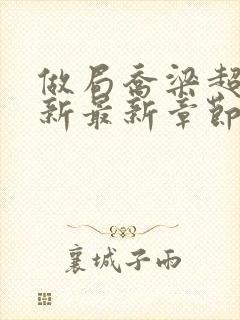 做局乔梁超
新最新章節
襄城子雨